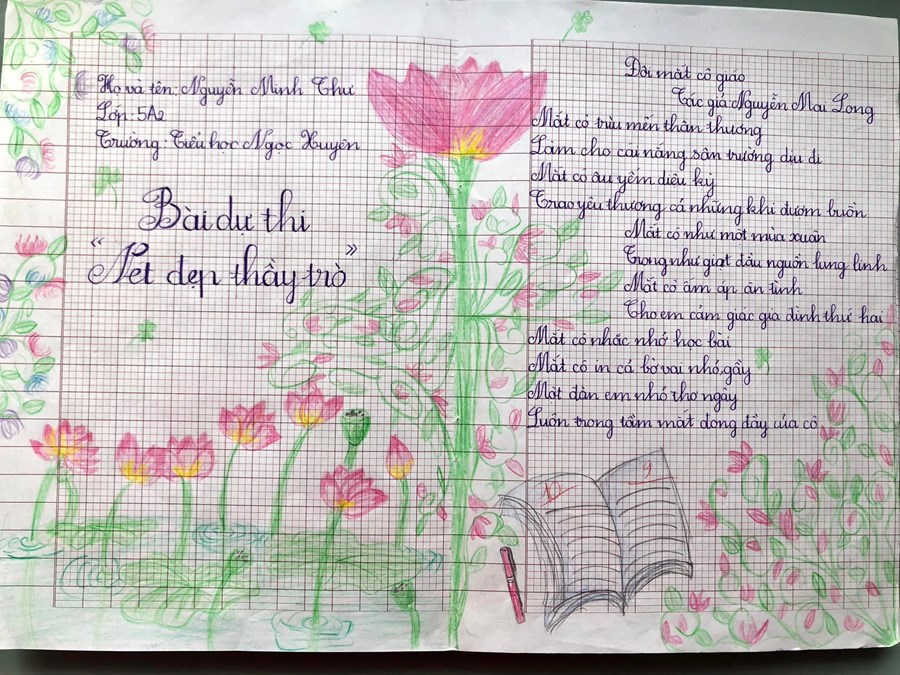 Họ và tên: Nguyễn Minh Thư
Lớp: 5A2
Trường: Tiểu học Ngọc Xuyên
Bài dự thi
"Nét đẹp thầy trò"
Đôi mắt cô giáo
Tác giả Nguyễn Mai Long
Mắt cô trìu mến thân thương
Làm cho cái nắng sân trường dịu đi
Mắt cô âu yếm diệu kỳ
Trao yêu thương cả những khi đượm buồn
Mắt cô như một mùa xuân
Trong như giọt đầu nguồn lung linh
Mắt cô ấm áp ân tình
Cho em cảm giác gia đình thứ hai
Mắt cô nhắc nhớ học bài
Mắt cô in cả bờ vai nhỏ, gầy
Một đàn em nhỏ thơ ngây
Luôn trong tầm mắt dong đầy của cô
10
9